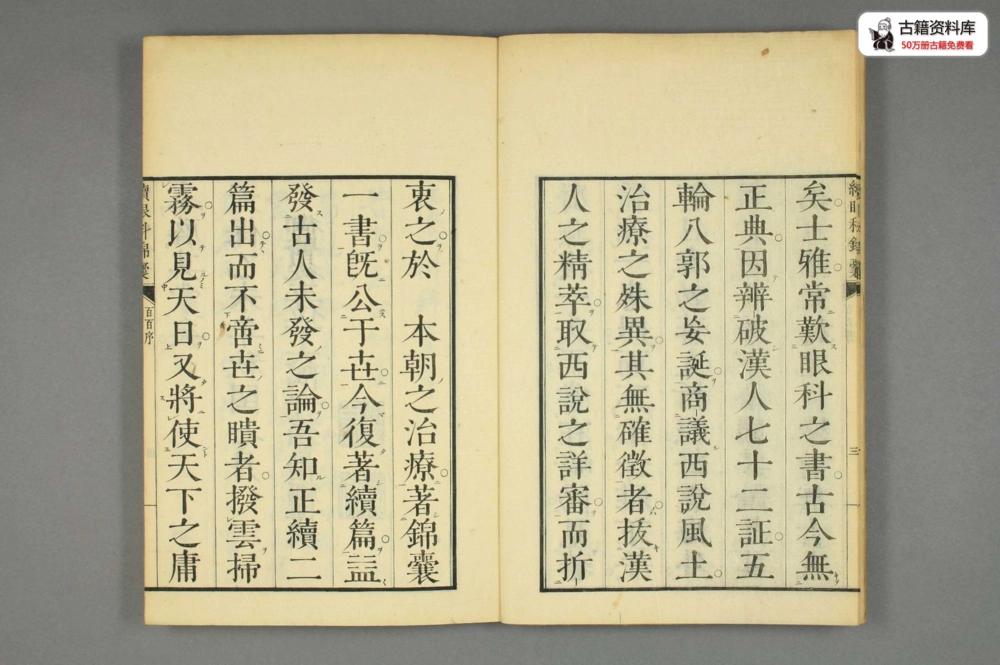 古籍资料库
50万册古籍免费看
矣士雅常歎眼科之書古今無
正典因辨破漢人七十二証五
輪八郭之妄誕商議西說風土
治療之殊異其無確徵者拔漢
人之精萃取西說之詳審而折
三
衷之於 本朝之治療著錦囊
一書旣公于世今復著續篇益
發古人未發之論吾知正續二
篇出而不啻世之瞶者撥雲掃
霧以見天日又將使天下之庸
續眼科錦囊
百百序